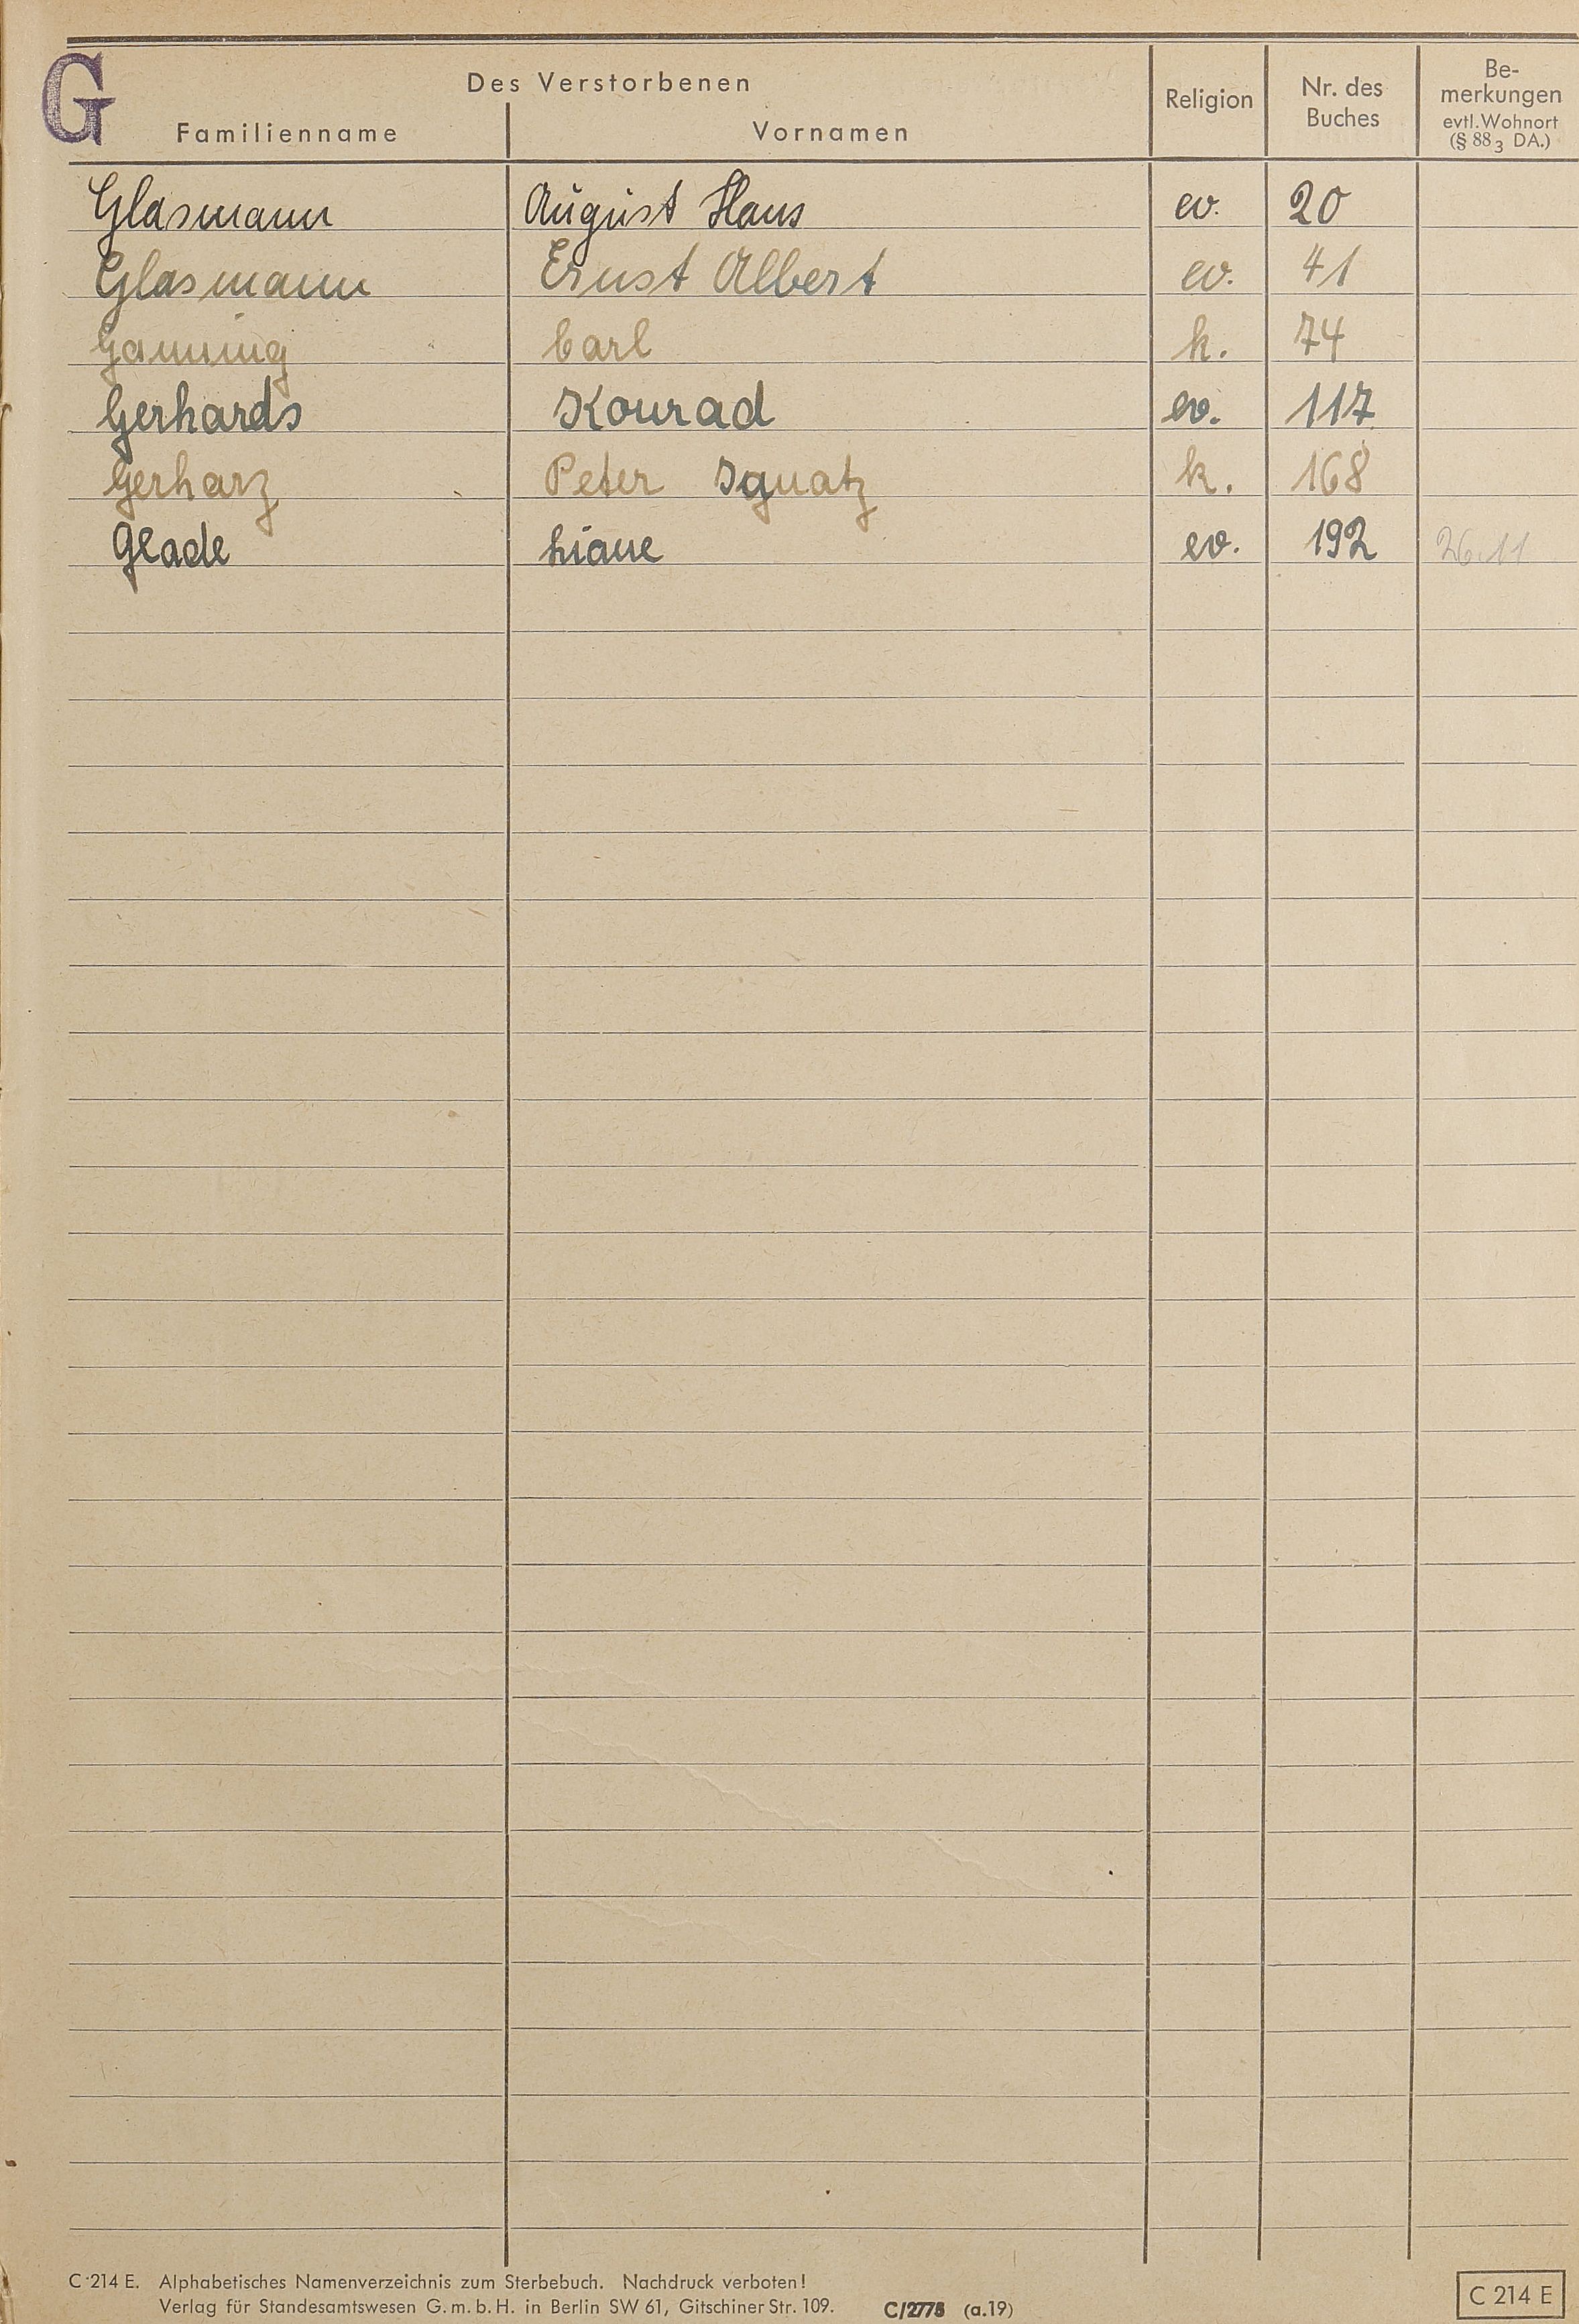 G
Des Verstorbenen
Familienname Vornamen Religion Nr. des Buches Be-merkungen evtl. Wohnort (§ 88₃ DA.)
Glasmann August Hans ev. 20
Glasmann Ernst Albert ev. 41
Carl k. 74
Gerhards Konrad ev. 117
Gerharz Peter Ignatz k. 168
Glade Liane ev. 192 26.11
C 214 E. Alphabetisches Namenverzeichnis zum Sterbebuch. Nachdruck verboten!
Verlag für Standesamtswesen G.m.b.H. in Berlin SW 61, Gitschiner Str. 109. C/2775 (a.19)
C 214 E